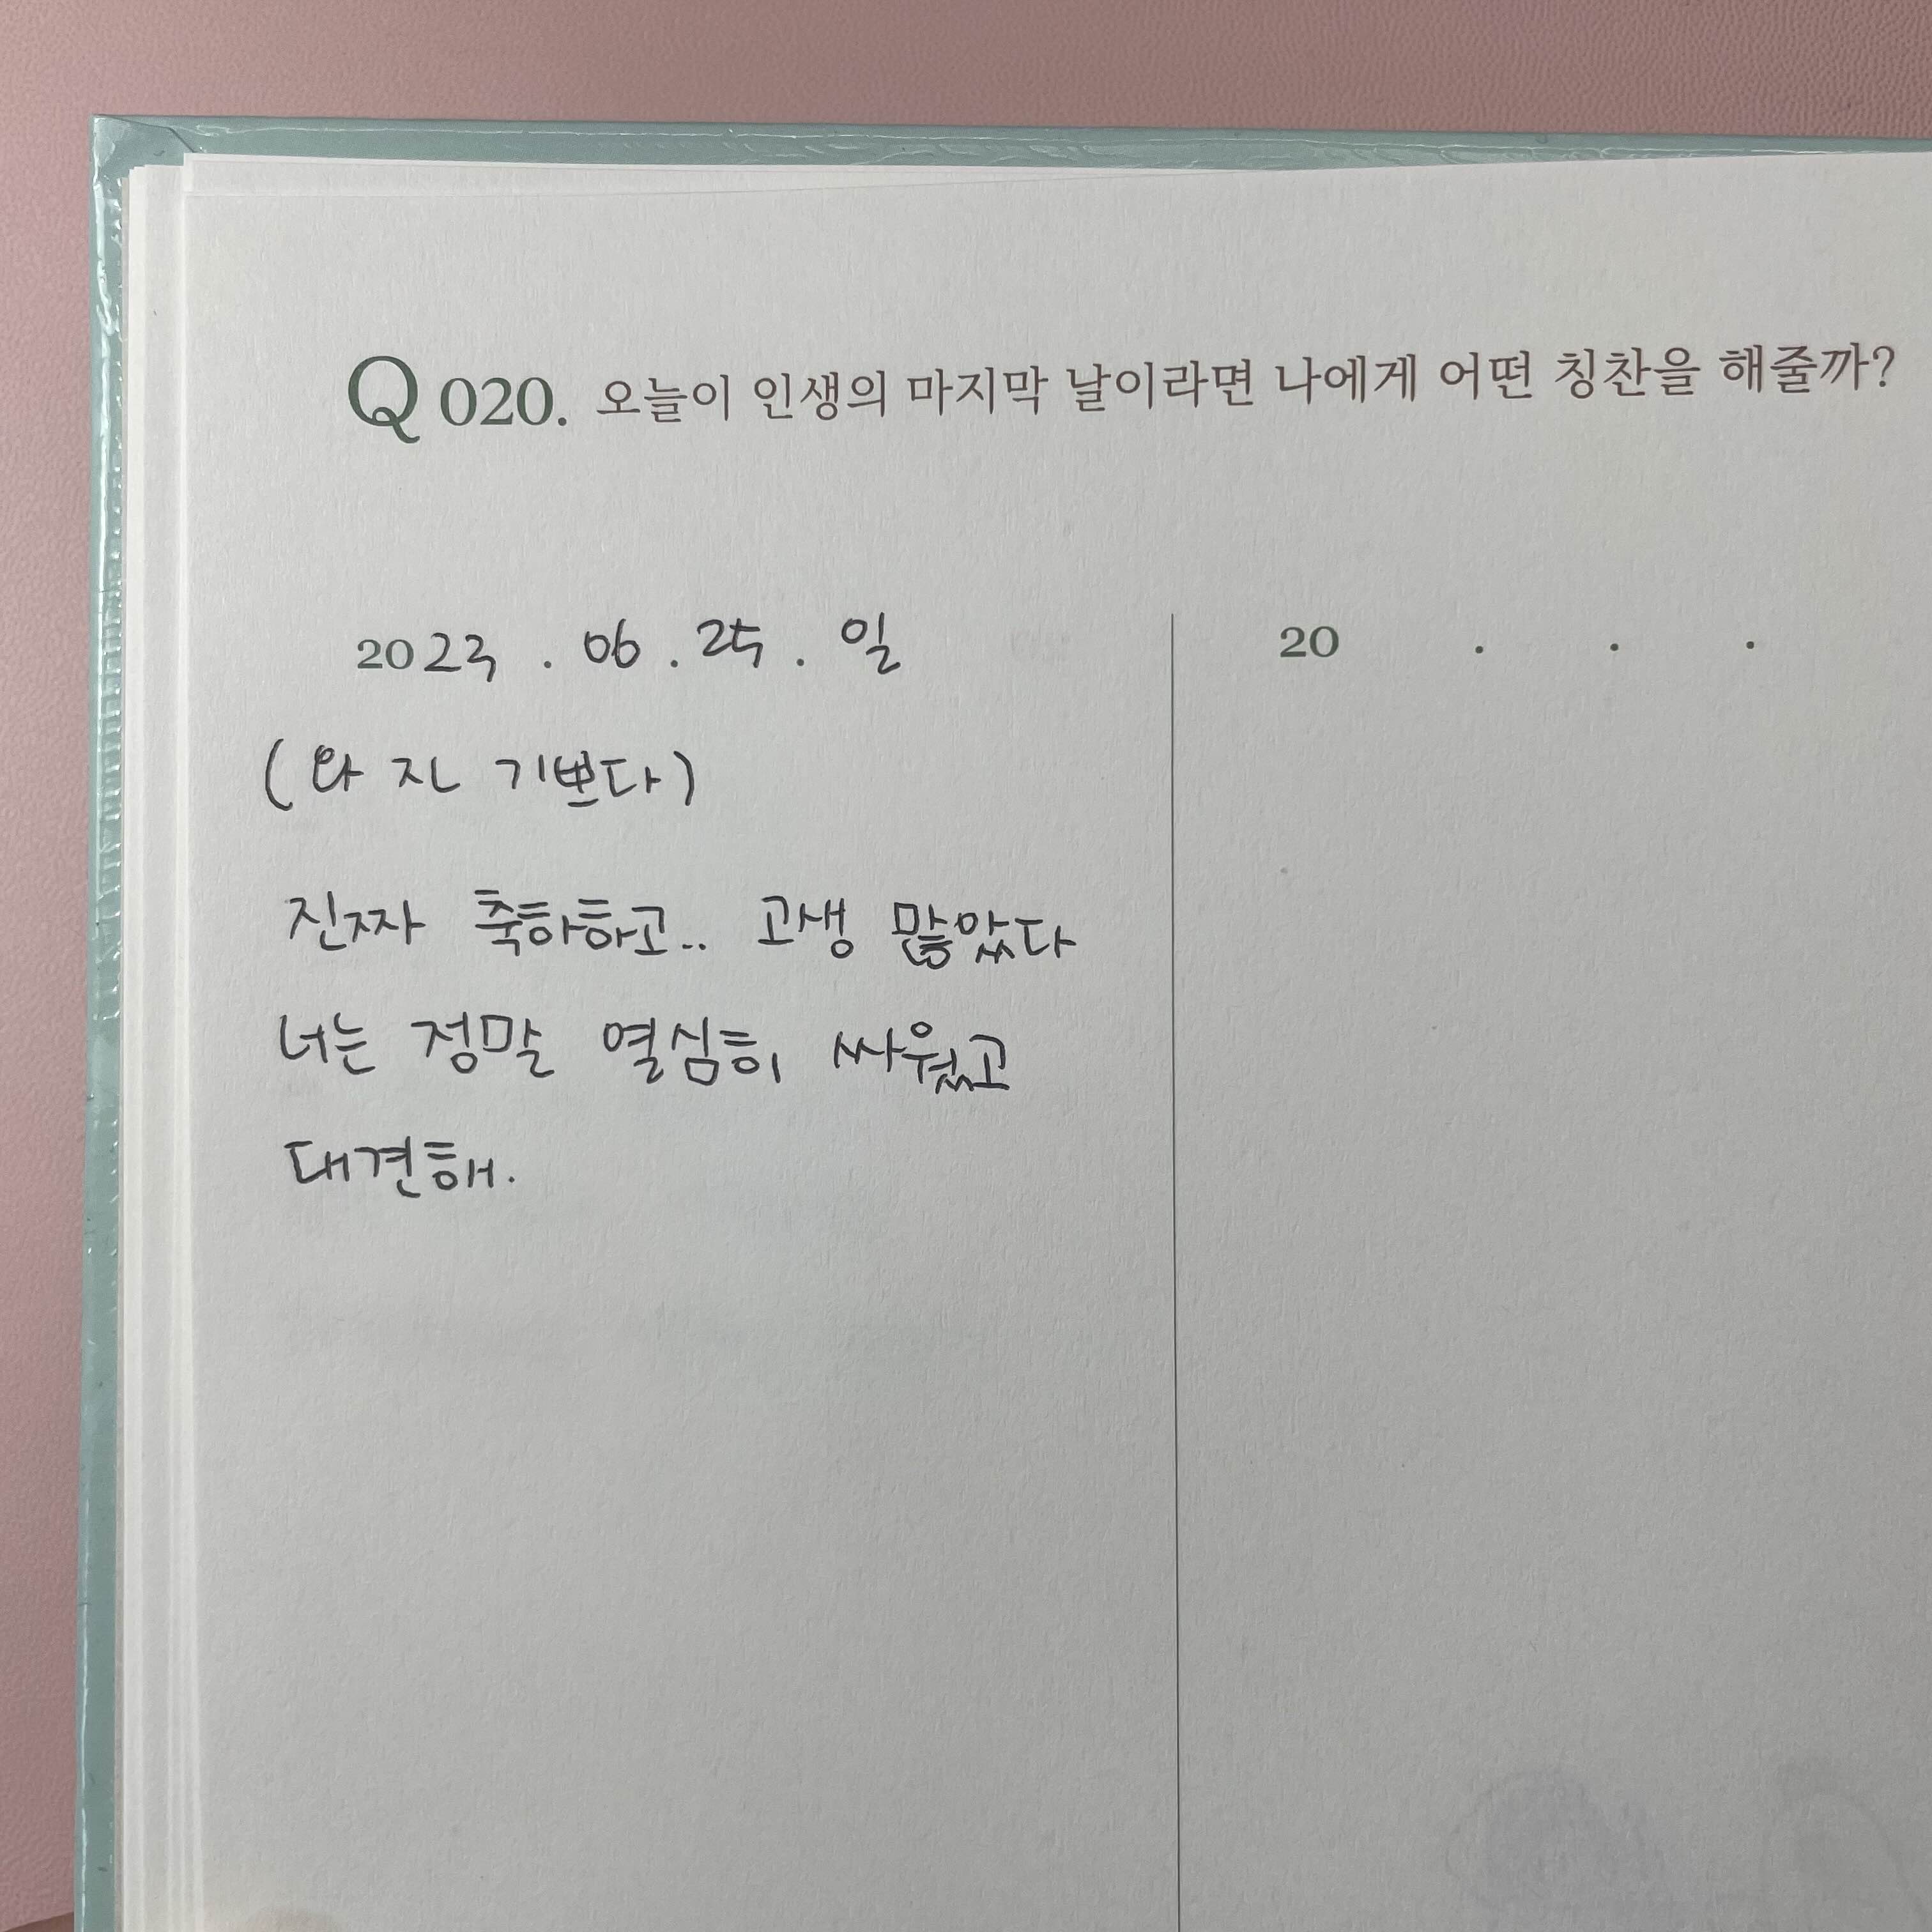 Q 020. 오늘이 인생의 마지막 날이라면 나에게 어떤 칭찬을 해줄까?
2023 . 06 . 25 . 일
(와 진 기쁘다)
진짜 축하하고.. 고생 많았다
너는 정말 열심히 싸웠고
대견해.
20 . . .